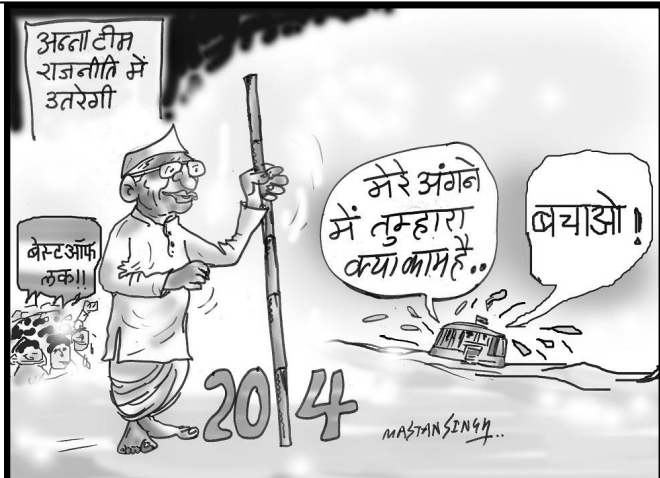 अन्ना टीम
राजनीति में
उतरेगी
बेस्ट ऑफ
लक!!
मेरे अंगने
में तुम्हारा
क्या काम है..
बचाओ!
2014
MASTANSINGH..